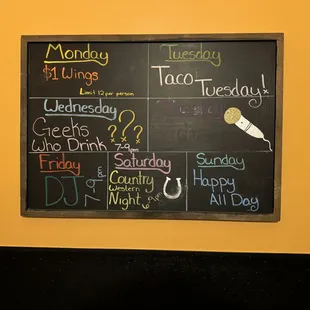 Monday
$1 Wings
Limit 12 per person
Tuesday
Taco Tuesday!
Wednesday
Geeks
Who Drink
???
7-9pm
Friday
DJ
7-9pm
Saturday
Country
Western
Night
Sunday
Happy
All Day